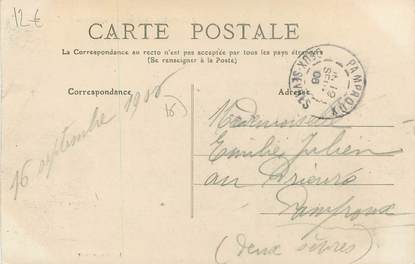 12€
CARTE POSTALE
La Correspondance au recto n'est pas acceptée par tous les pays étrangers
(Se renseigner à la Poste)
PAMPROUX
DEUX-SEVRES
06
Correspondance
Adresse
16 septembre 1906
Mademoiselle
Emilie Julien
au Prieuré
Pamproux
(deux sèvres)